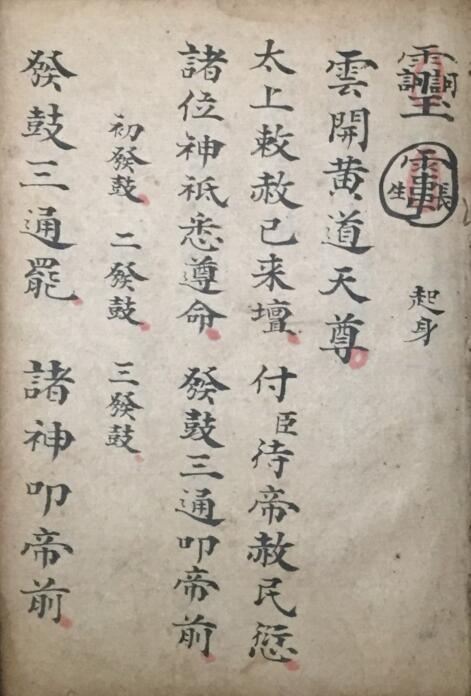 起身
雲開黄道天尊
太上敕赦已来壇 付臣待帝赦民愆
諸位神祇悉尊命 發鼓三通叩帝前
初發鼓 二發鼓 三發鼓
發鼓三通罷 諸神叩帝前